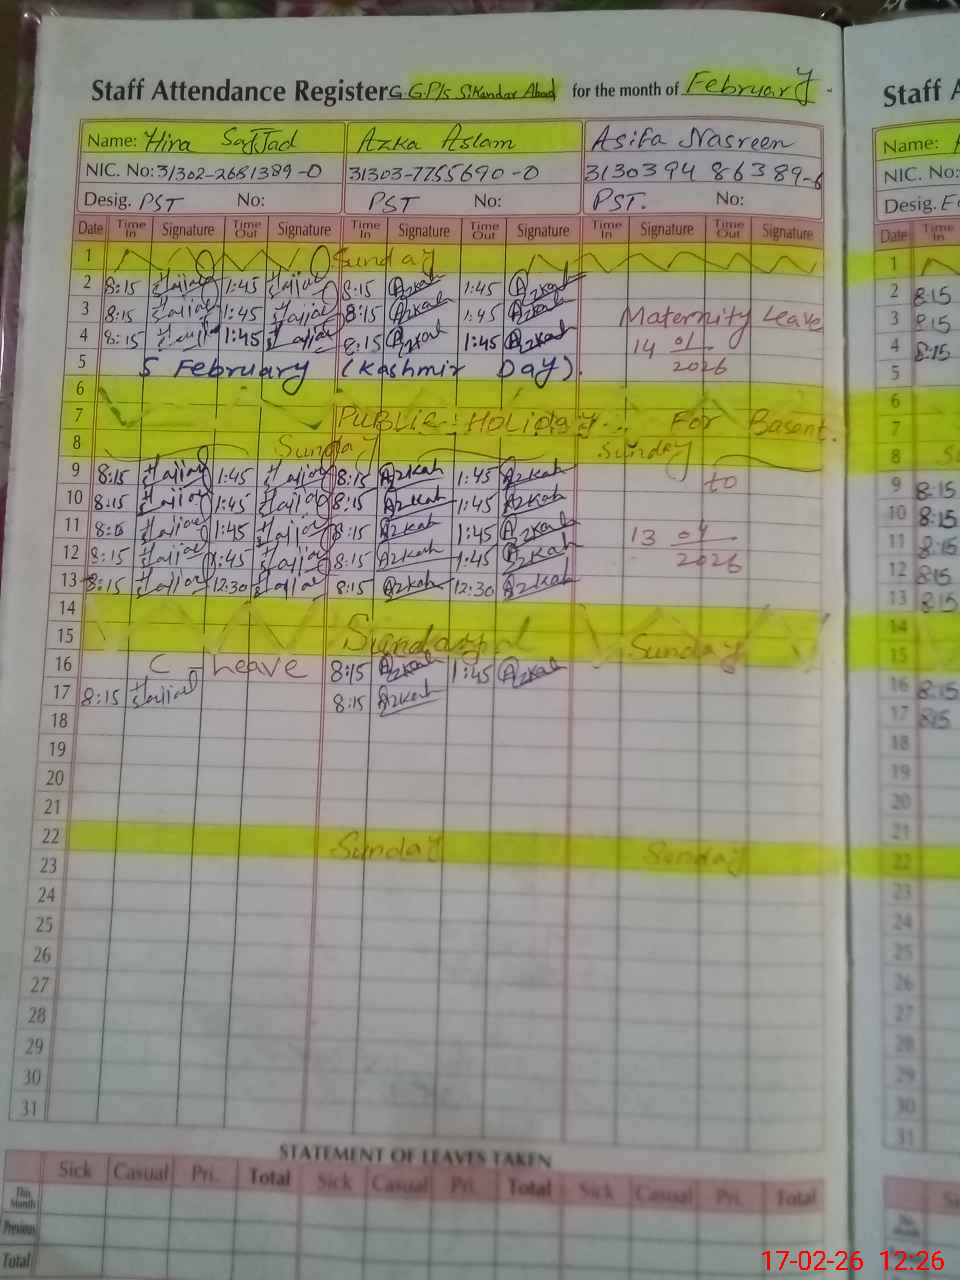 Staff Attendance Register G.G.P/s Sikandar Abad for the month of February
Name: Hira Sajjad Azka Aslam Asifa Nasreen
NIC. No: 31302-2681389-0 31303-7755690-0 3130394 86389-6
Desig. PST No: PST No: PST. No:
Date Time In Signature Time Out Signature Time In Signature Time Out Signature Time In Signature Time Out Signature
1 Sunday
2 8:15 1:45 8:15 Azkah 1:45 Azkah
3 8:15 1:45 8:15 Azkah 1:45 Azkah Maternity Leave
4 8:15 1:45 8:15 Azkah 1:45 Azkah 14 01
5 5 February (Kashmir Day). 2026
6
7 PUBLIC Holiday For Basant.
8 Sunday Sunday
9 8:15 1:45 8:15 Azkah 1:45 Azkah to
10 8:15 1:45 8:15 Azkah 1:45 Azkah
11 8:15 1:45 8:15 Azkah 1:45 Azkah 13 04
12 8:15 1:45 8:15 Azkah 1:45 Azkah 2026
13 8:15 12:30 8:15 Azkah 12:30 Azkah
14
15 Sunday
16 C-Leave 8:15 Azkah 1:45 Azkah
17 8:15 8:15 Azkah
18
19
20
21
22 Sunday Sunday
23
24
25
26
27
28
29
30
31
STATEMENT OF LEAVES TAKEN
Sick Casual Pri. Total Sick Casual Pri. Total Sick Casual Pri. Total
This Month
Previous
Total
Staff
Name:
NIC. No:
Desig.
Date Time In
1
2 8:15
3 8:15
4 8:15
5
6
7
8
9 8:15
10 8:15
11 8:15
12 8:15
13 8:15
14
15
16 8:15
17 8:15
18
19
20
21
22
23
24
25
26
27
28
29
30
31
17-02-26 12:26